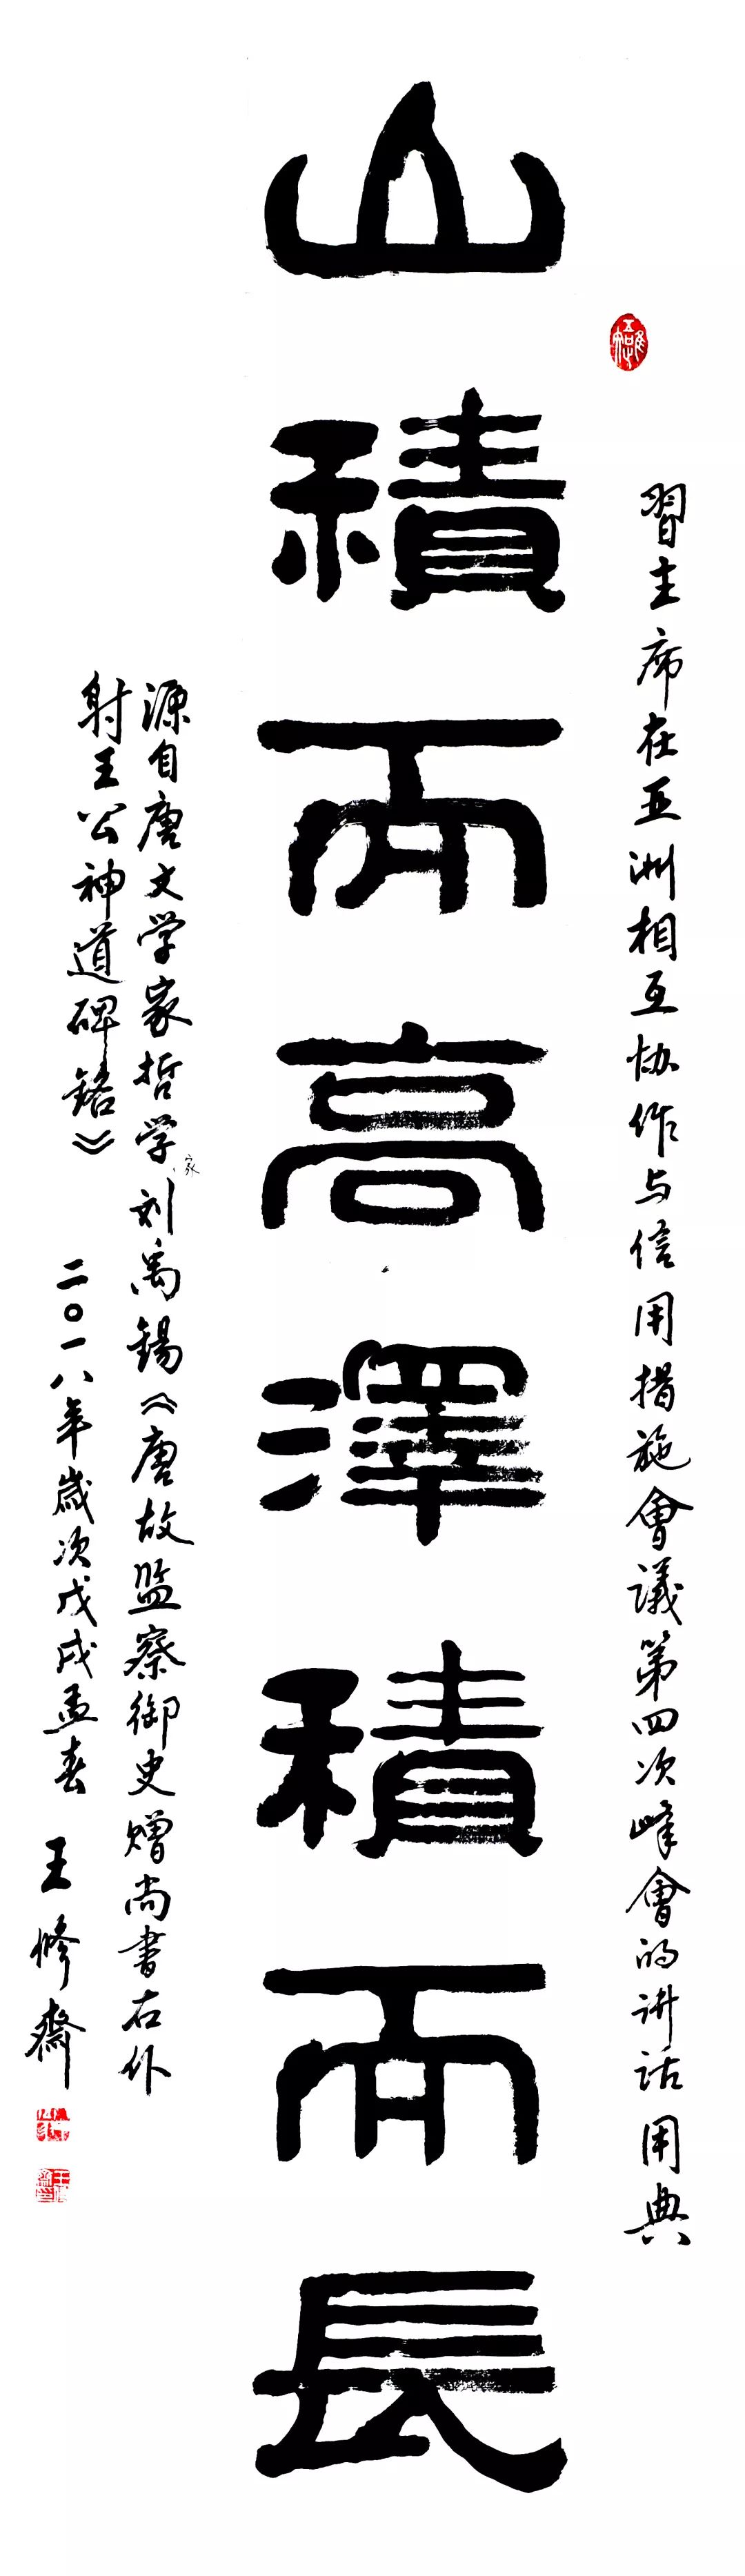 習主席在亚洲相互协作与信用措施會議第四次峰會的讲话用典
山積而高澤積而長
源自唐文学家哲学家刘禹锡《唐故监察御史赠尚書右仆
射王公神道碑铭》
二〇一八年歲次戊戌孟春 王修齋